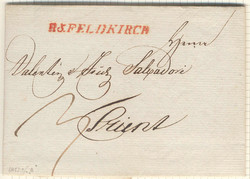 R.S. FELDKIRCH
Herrn
Valentin Salvadori
Trient